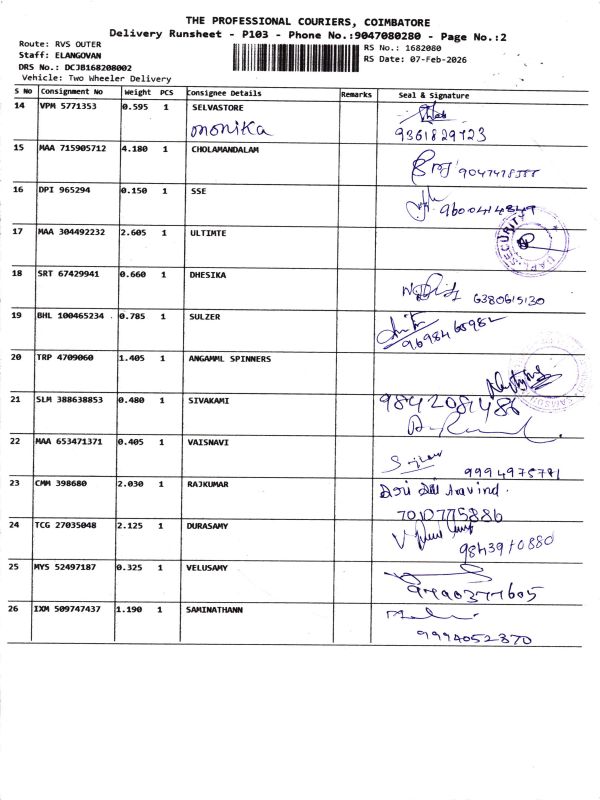 THE PROFESSIONAL COURIERS, COIMBATORE
Delivery Runsheet - P103 - Phone No.:9047080280 - Page No.:2
Route: RVS OUTER
Staff: ELANGOVAN
DRS No.: DCJB168208002
Vehicle: Two Wheeler Delivery
RS No.: 1682080
RS Date: 07-Feb-2026
S No Consignment No Weight PCS Consignee Details Remarks Seal & Signature
14 VPM 5771353 0.595 1 SELVASTORE
monika 9361829723
15 MAA 715905712 4.180 1 CHOLAMANDALAM
16 DPI 965294 0.150 1 SSE
9600414849
17 MAA 304492232 2.605 1 ULTIMTE
SECURITY
18 SRT 67429941 0.660 1 DHESIKA
6380615130
19 BHL 100465234 0.785 1 SULZER
9698465982
20 TRP 4709060 1.405 1 ANGAMML SPINNERS
21 SLM 388638853 0.480 1 SIVAKAMI
9842081486
22 MAA 653471371 0.405 1 VAISNAVI
9994975771
23 CMM 398680 2.030 1 RAJKUMAR
Aravind.
7010775886
24 TCG 27035048 2.125 1 DURASAMY
9843970880
25 MYS 52497187 0.325 1 VELUSAMY
26 IXM 509747437 1.190 1 SAMINATHANN
9994052870